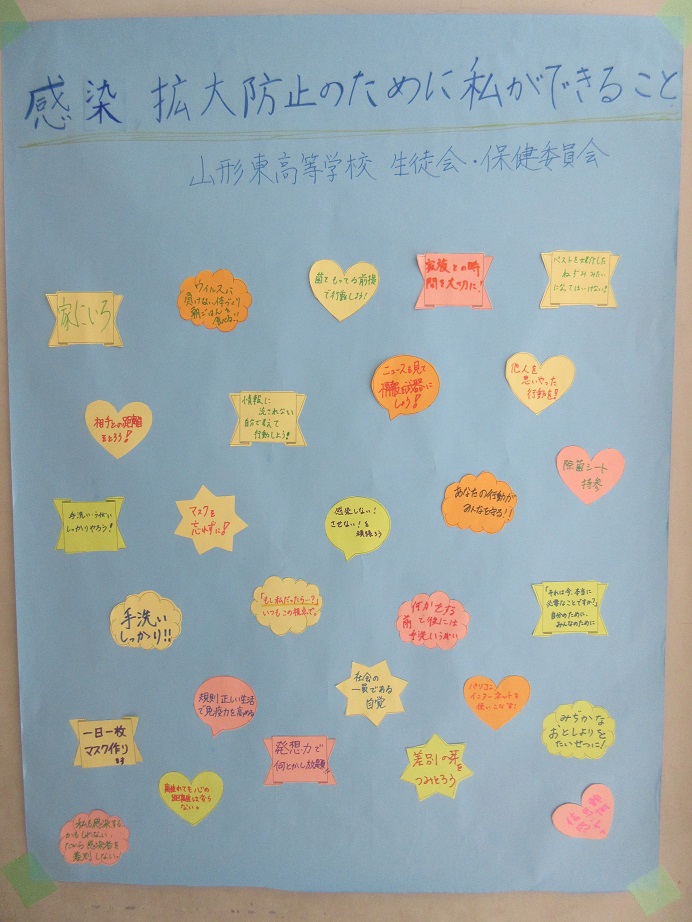 感染 拡大防止のために私ができること
山形東高等学校 生徒会・保健委員会
家にいろ
ウイルスに
負けない体づくり
朝ごはんを
菌をもってる前提
で行動しよう!
家族との時
間を大切に!
ペストを媒介した
ねずみみたい
になってはいけない!
相手との距離
をとろう!
情報に
流されない
自分で考えて
行動しよう!
ニュースを見て
情報を武器に
しよう!
他人を
思いやった
行動を!
除菌シート
持参
手洗い・うがい
しっかりやろう!
マスクを
忘れずに!
感染しない!
させない!を
頑張ろう
あなたの行動が
みんなを守る!!
手洗い
しっかり!!
「もし私だったら…?」
いつもこの視点で。
何かをする
前で後には
手洗いうがい
「それは今、本当に
必要なことですか?」
自分のために、
みんなのために
規則正しい生活
で免疫力を高める
社会の
一員である
自覚
パソコン
インターネットを
使いこなす!
一日一枚
マスク作り
ます
離れても心の
距離は変わら
ない。
発想力で
何とかし放題!!
差別の芽を
つみとろう
みぢかな
おとしよりを
たいせつに!
私も感染する
かもしれない、
だから感染者を
差別しない。